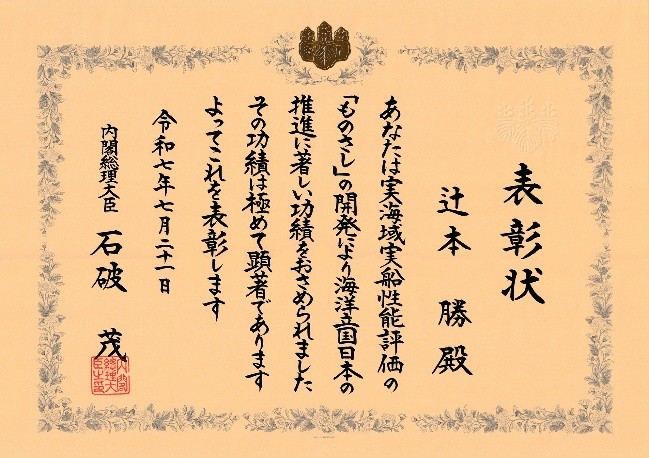 表彰状
辻本 勝殿
あなたは実海域実船性能評価の
「ものさし」の開発により海洋立国日本の
推進に著しい功績をおさめられました
その功績は極めて顕著であります
よってこれを表彰します
令和七年七月二十一日
内閣総理大臣 石破 茂
内閣
總理大
臣之印